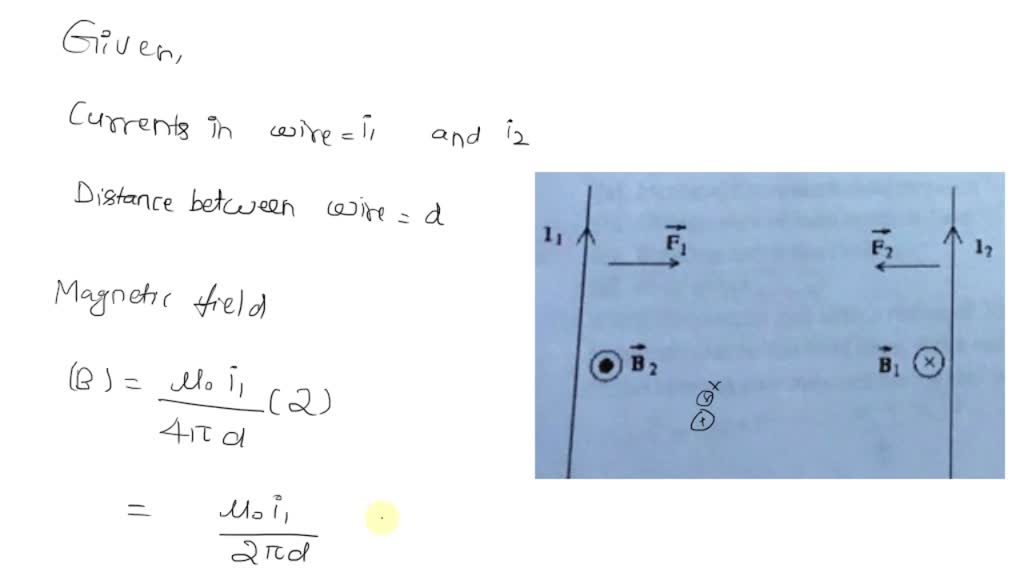 Given,
Currents in wire = i₁ and i₂
Distance between wire = d
Magnetic field
(B) = μ₀ i₁ / 4π d (2)
= μ₀ i₁ / 2π d
I₁ F₁ F₂ I₂
B₂ B₁